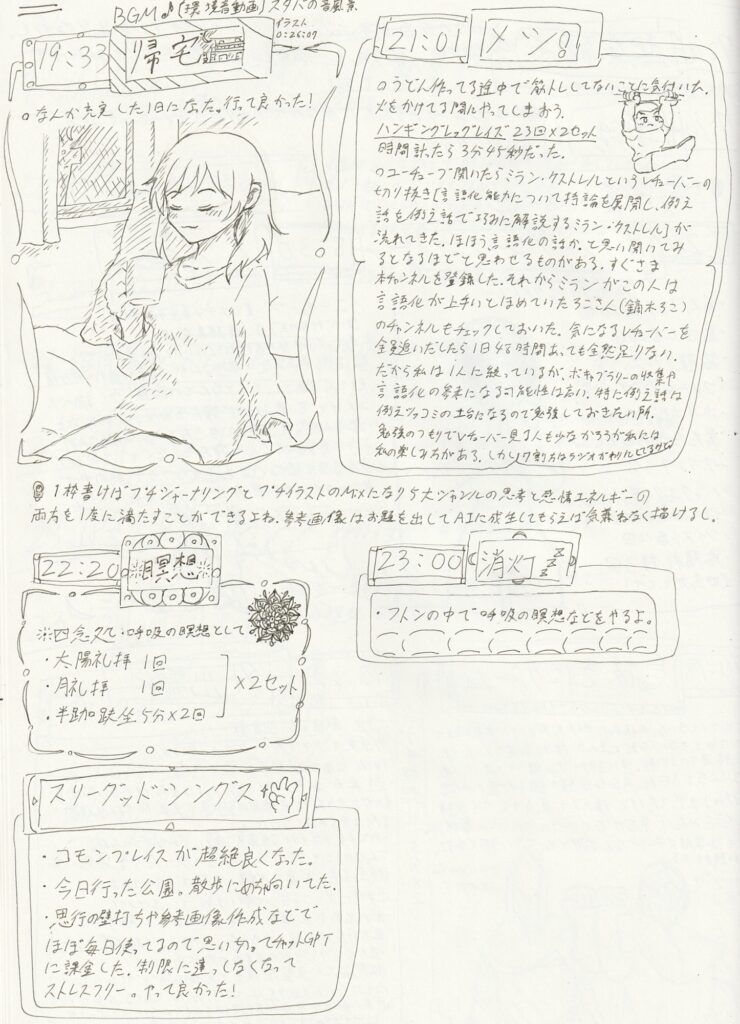 BGM♪(環境音動画)スタバの音風景
イラスト
0:26:09
19:33
帰宅
○なんか充実した1日になった。行って良かった!
21:01
メシ
○うどん作ってる途中で筋トレしてないことに気付いた。
火をかけてる間にやってしまおう。
ハンギングレッグレイズ23回×2セット
時間計ったら3分45秒だった。
○ユーチューブ開いたらミラン・ケストレルというVチューバーの
切り抜き[言語化能力について持論を展開し、例え
話を例え話で巧みに解説するミラン・ケストレル]が
流れてきた。ほほう言語化の話か。と思い聞いてみ
るとなるほどと思わせるものがある。すぐさま
本チャンネルを登録した。それからミランがこの人は
言語化が上手いとほめていたろこさん(鏑木ろこ)
のチャンネルもチェックしておいた。気になるVチューバーを
全員追いだしたら1日48時間あっても全然足りない。
だから私は1人に絞っているが、ボキャブラリーの収集や
言語化の参考になる可能性は高い。特に例え話は
例えツッコミの土台になるので勉強しておきたい所。
勉強のつもりでVチューバー見る人も少なかろうが私には
私の楽しみ方がある。しかし7割方はラジオがわりにしてるけど
1枠書けばプチジャーナリングとプチイラストのMixになり5大ジャンルの思考と感情エネルギーの
両方を1度に満たすことができるよね。参考画像はお題を出してAIに生成してもらえば気兼ねなく描けるし。
22:20
瞑想
※四念処:呼吸の瞑想として
・太陽礼拝 1回
・月礼拝 1回
・半跏趺坐5分×2回
×2セット
23:00
消灯 zzz
・フトンの中で呼吸の瞑想などをやるよ。
スリーグッドシングス
・コモンプレイスが超絶良くなった。
・今日行った公園。散歩にめちゃ向いてた。
・思行の壁打ちや参考画像作成などで
ほぼ毎日使ってるので思い切ってチャットGPT
に課金した。制限に達っしなくなって
ストレスフリー。やって良かった!